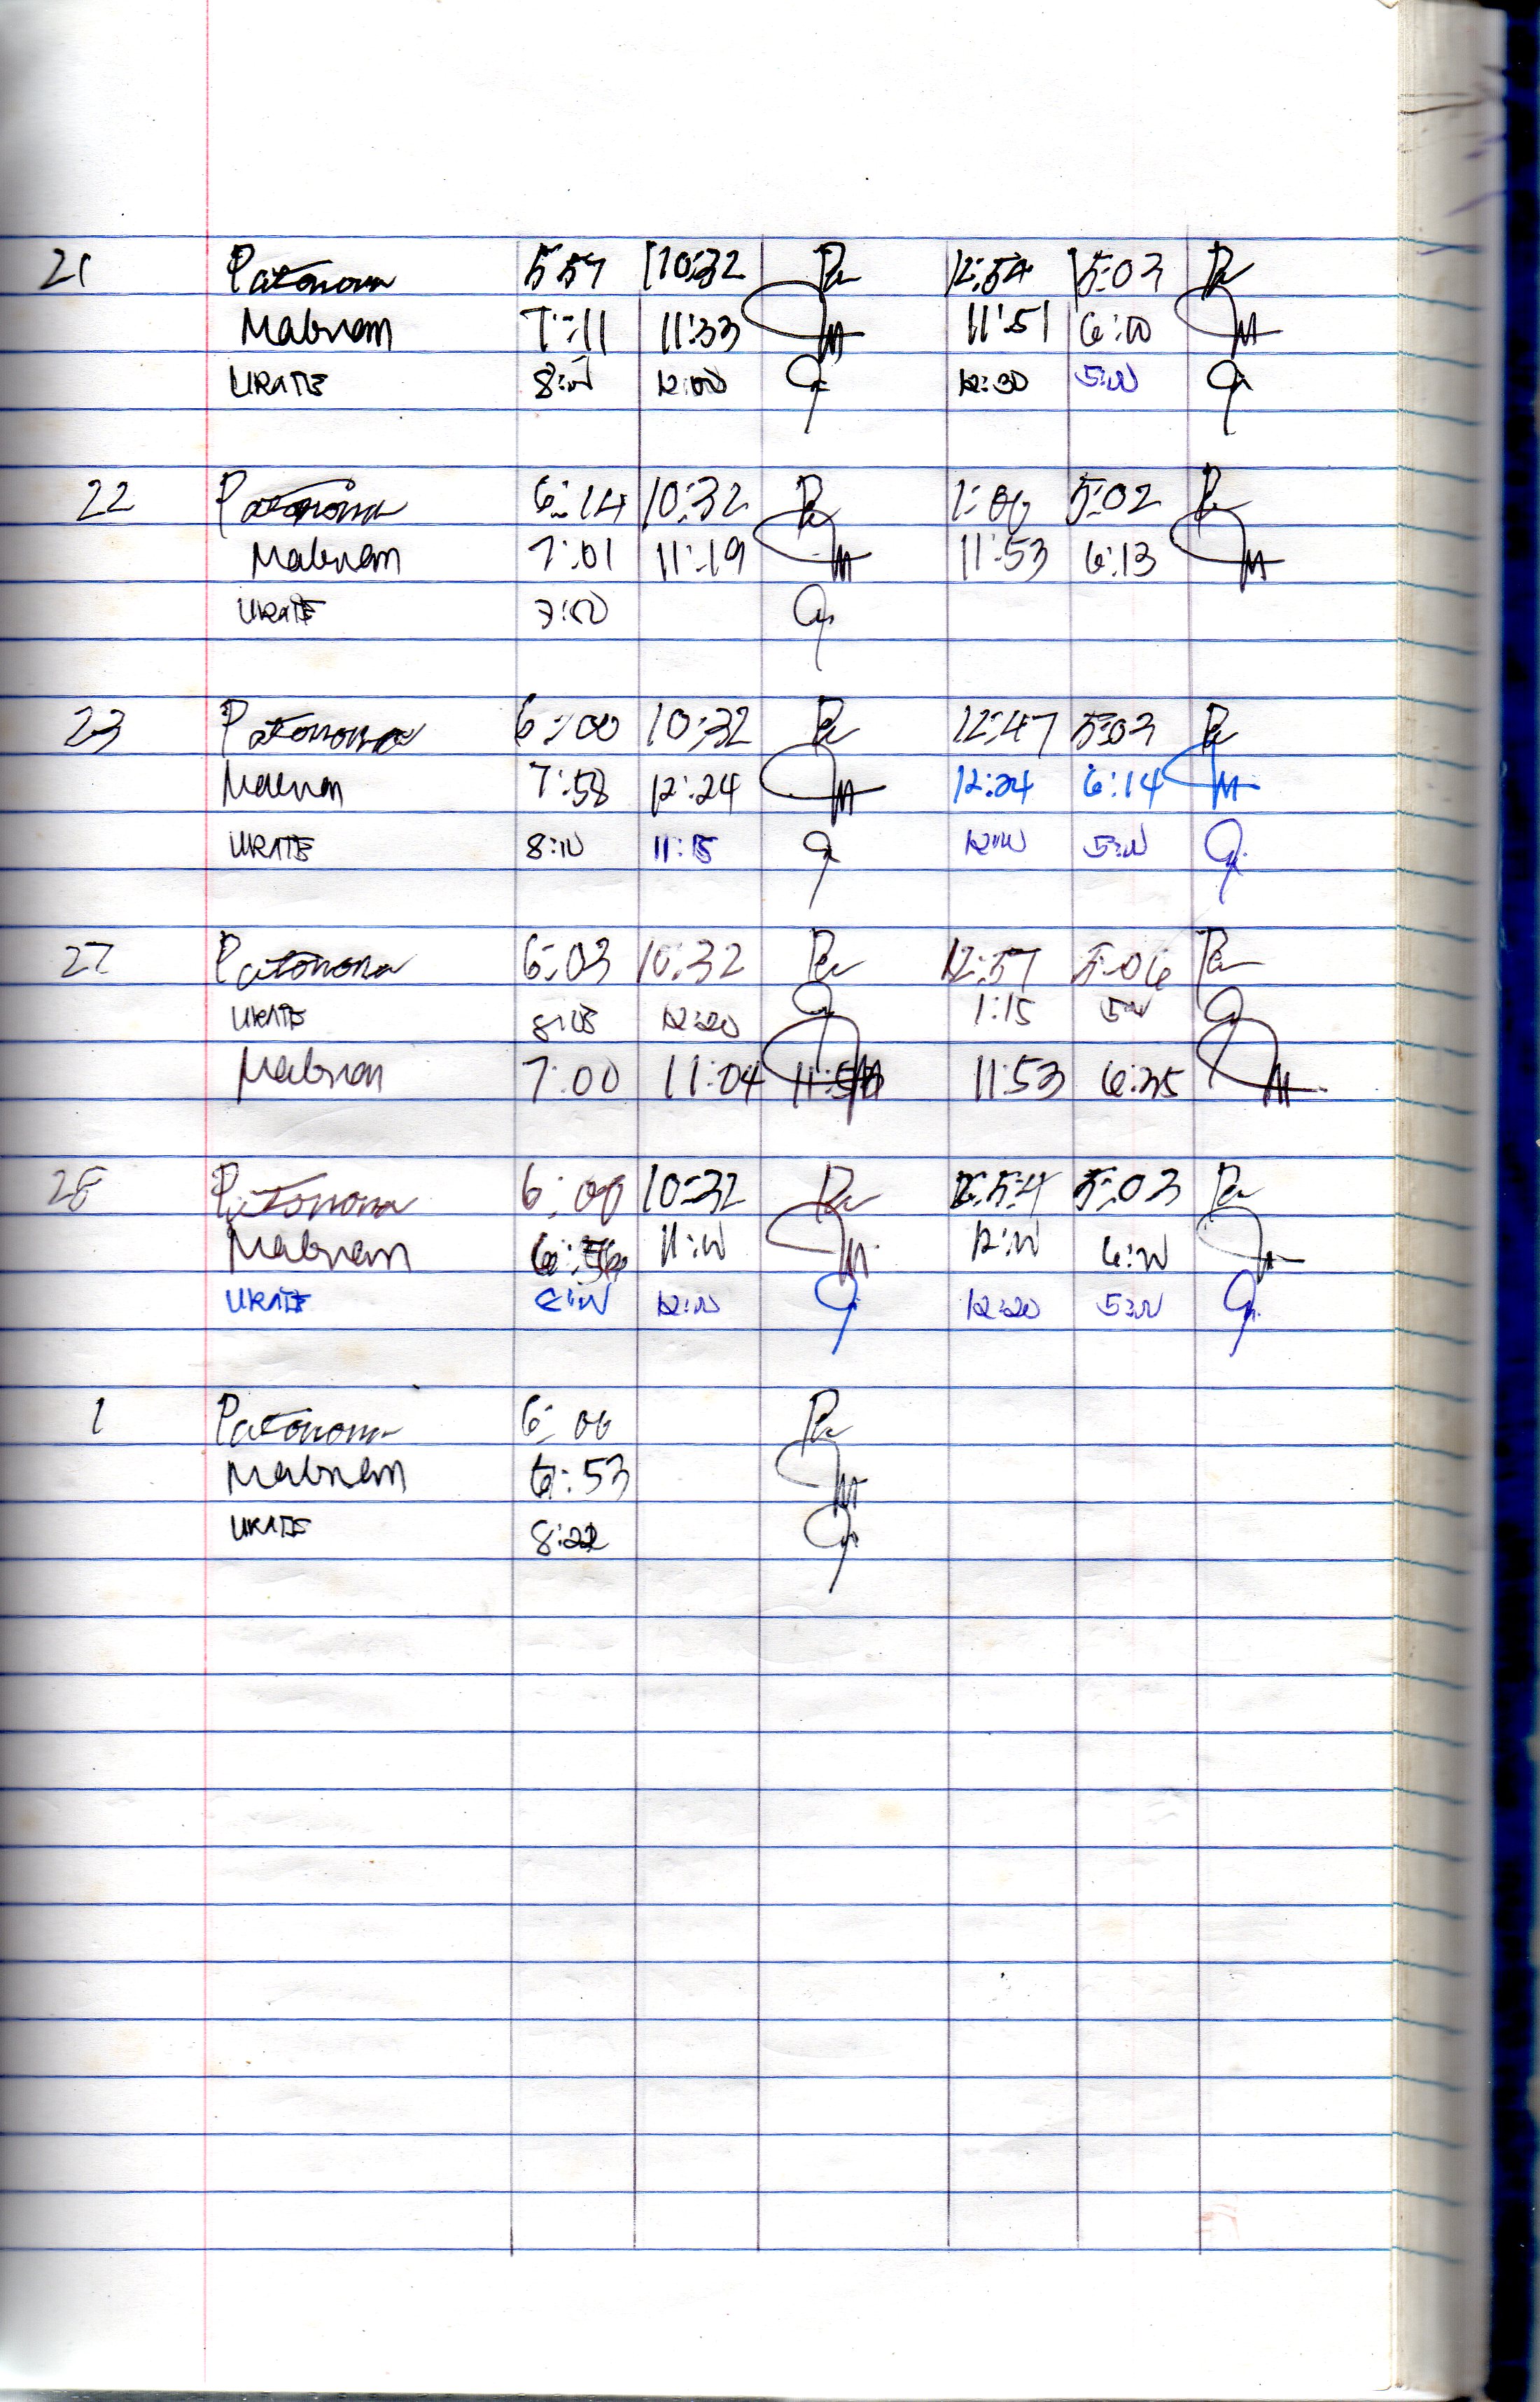 21 Patonona 5:57 10:32 12:54 5:03
Mabnan 7:11 11:33 11:51 6:00
URATE 8:00 12:00 12:30 5:00
22 Patonona 6:14 10:32 1:00 5:02
Mabnan 7:01 11:19 11:53 6:13
URATE 7:00
23 Patonona 6:00 10:32 12:47 5:03
Mabnan 7:58 12:24 12:24 6:14
URATE 8:10 11:15 12:00 5:00
27 Patonona 6:03 10:32 12:57 5:06
URATE 12:20 1:15
Mabnan 7:00 11:04 11:53 6:35
28 Patonona 6:00 10:32 5:03
Mabnan 6:56 11:00 12:00 6:00
URATE 12:00 12:20 5:00
1 Patonona 6:00
Mabnan 6:53
URATE 8:22